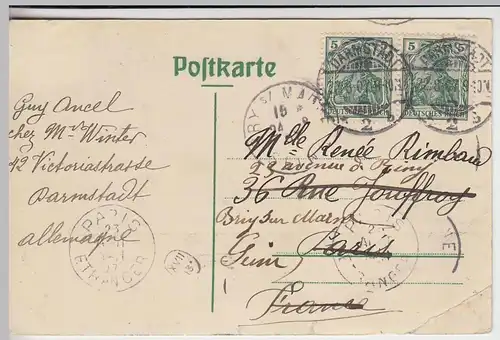 Postkarte
5 5
DEUTSCHES REICH
DARMSTADT
2
DARMSTADT
2
BRY s/ MARNE
15
Guy Ancel
chez Mr Winter
42 Victoriastrasse
Darmstadt
Allemagne
Mlle Renée Rimbau
22 avenue de
36 Rue Jouffroy
Bry sur Marne
Paris
Seine
France
PARIS
ETRANGER
XVII